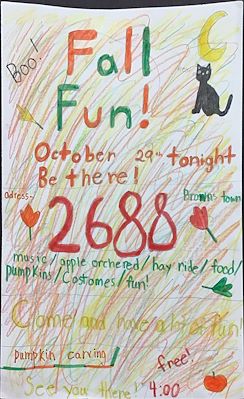 Boo!
Fall
Fun!
October 29th tonight
Be there!
adress- Browns town
2688
music/apple orchered/hay ride/food/
pumpkins/Costomes/fun!
Come and have a lot of fun!
pumpkin carving
free!
See you there! 4:00